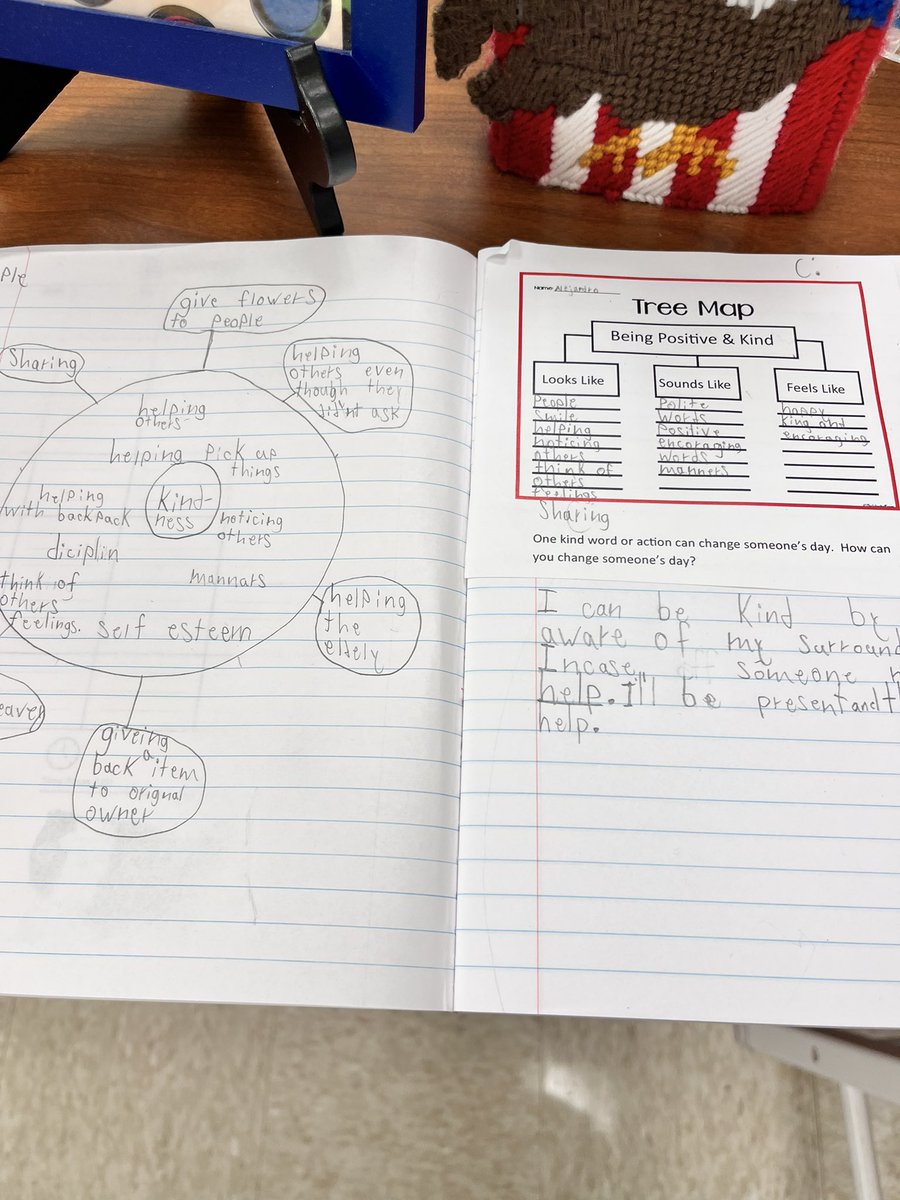 ple
give flowers
to people
Sharing
helping
others even
though they
did'nt ask
helping
others
helping pick up
things
Kind-
ness
helping
with backpack
noticing
others
diciplin
mannars
think of
others
feelings.
self esteem
helping
the
eldely
giveing
back a item
to orignal
owner
C:
Name: Alejandra
Tree Map
Being Positive & Kind
Looks Like
People
smile
helping
noticing
others
think of
others
feelings
Sharing
Sounds Like
Polite
words
Positive
encoraging
words
manners
Feels Like
happy
king and
encoraging
One kind word or action can change someone's day. How can
you change someone's day?
I can be Kind by
aware of my surround
Incase someone
help. I'll be present and
help.